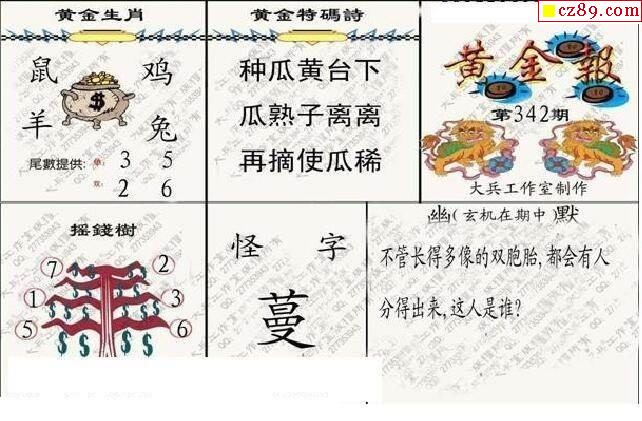 黄金生肖
鼠 鸡
羊 兔
$
尾數提供: 单: 3 5
双: 2 6
黄金特碼詩
种瓜黄台下
瓜熟子离离
再摘使瓜稀
cz89.com
黄金報
第342期
大兵工作室制作
摇錢樹
7 2
1 3
5 6
怪 字
蔓
幽(玄机在期中)默
不管长得多像的双胞胎,都会有人
分得出来,这人是谁?